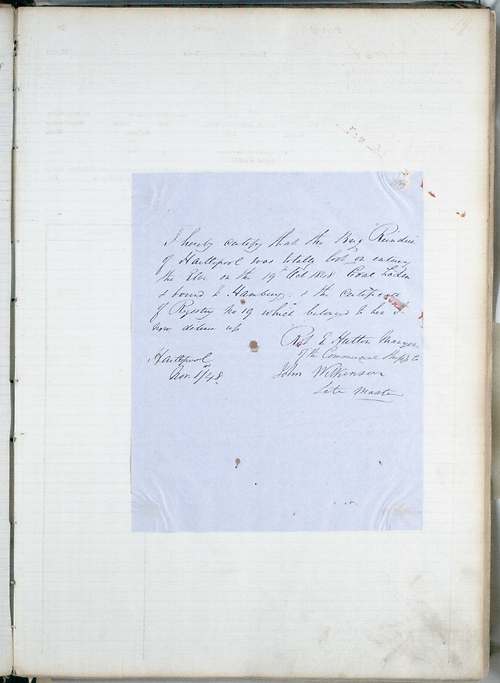 I hereby certify that the Brig Reindeer
of Hartlepool was totally lost on entering
the Elbe on the 19th Oct 1848 Coal Laden
& bound to Hamburg, & the certificate
of Registry No 19 which belonged to her I
now deliver up
Robt E Hutton Manager
of the Commercial Shipg Co
Hartlepool
Nov 1/48
John Wilkinson
Late Master